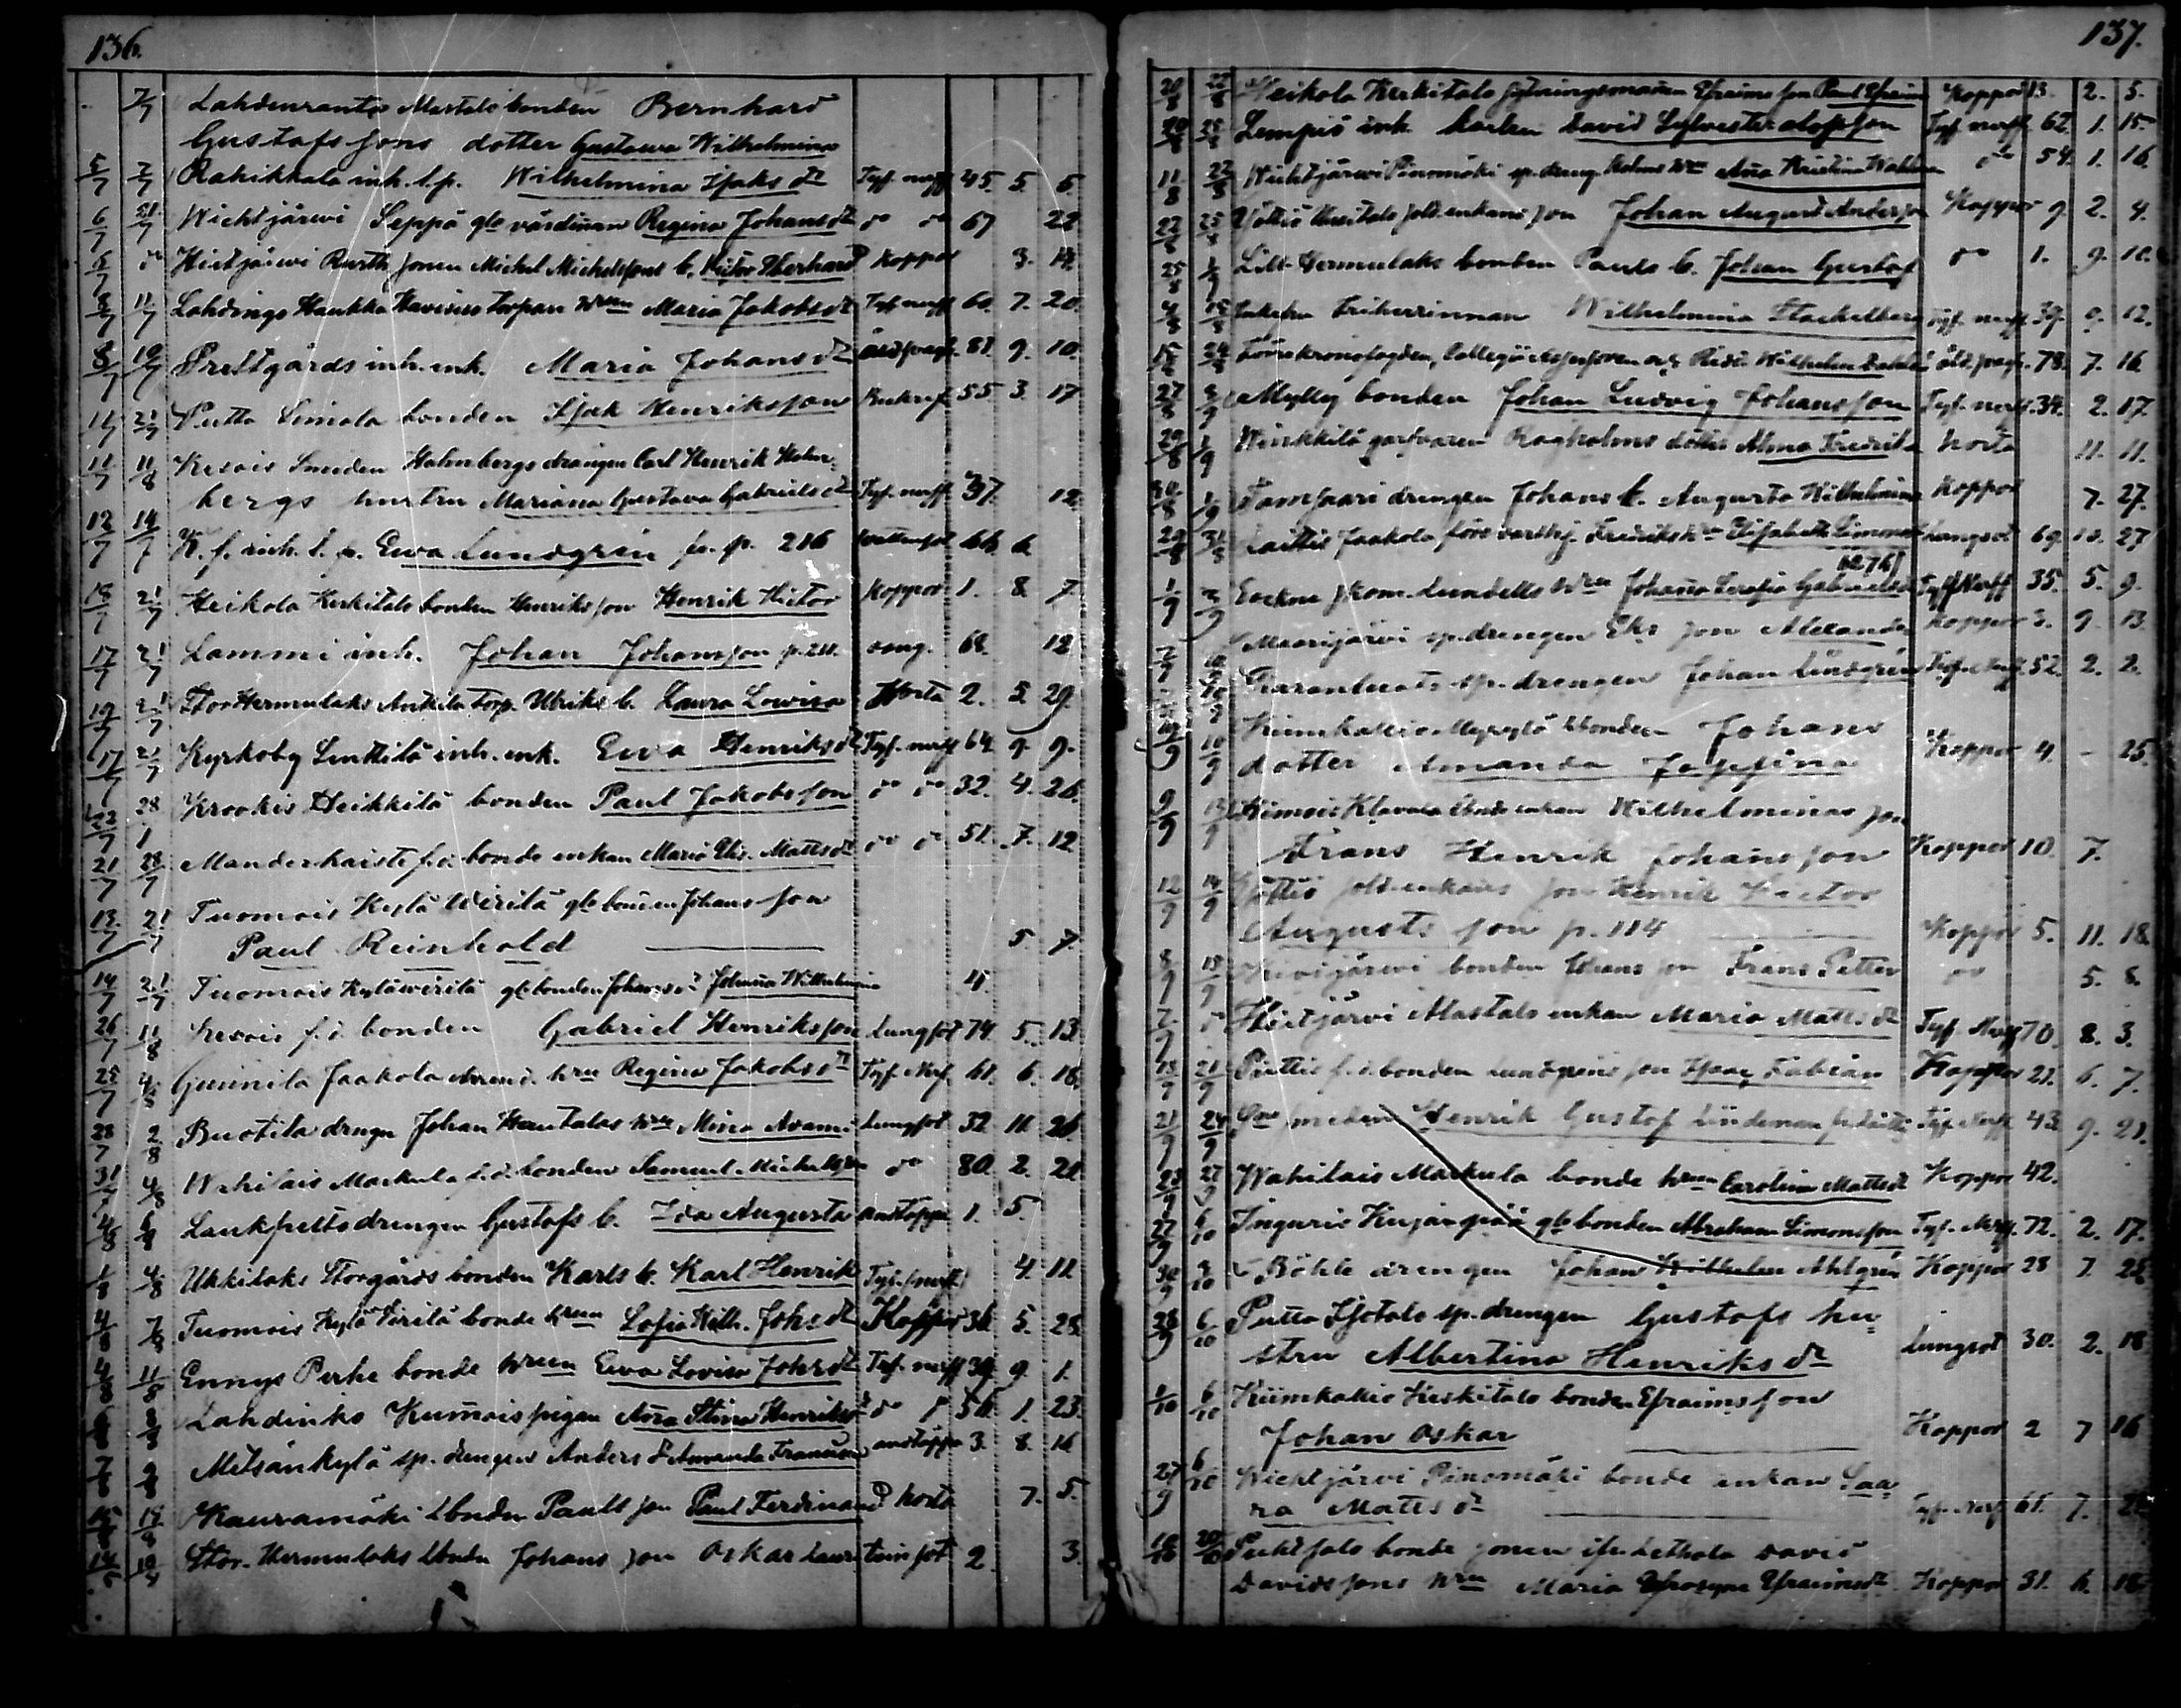 136.
7/7 Lahdenranta Martals bonden Bernhard
Gustafssons dotter Gustava Wilhelmina
5/7 7/7 Rahikkala inh. l.p. Wilhelmina Isaks dr Tyf. nerff 45. 5. 5.
6/7 21/7 Wichtjärwi Seppä gla värdinnan Regina Johansdr do do 67 22.
Hietjärwi sonen Michel Michelssons b. Victor Eberhard Koppor 3. 14.
11/7 Lahdings Haukka Torpare hrun Maria Jakobsdr Tyf nerff 60. 7. 20.
8/7 10/7 Prestgårds inh. enk. Maria Johansdr 81. 9. 10.
11/7 21/7 Putto Simola bonden Isak Henriksson 55 3. 17
11/7 11/8 Kesois Smeden Holmbergs drängen Carl Henrik Holm-
bergs hustru Mariana Gustava Gabrielsdr Tyf. nerff 37. 12
12/7 14/7 K. f. inh. l. p. Ewa Lundgren fr. p. 216 vattensot 66 6.
15/7 21/7 Heikola Keskitalo bonden Henriks son Henrik Victor Koppor 1. 8 7
17/7 21/7 Lammi inh. Johan Johansson p. 211. 68. 12
19/7 21/7 Stor Hermulaks Anttila torp. Ulriks b. Laura Lowisa Hosta 2. 5 29.
17/7 21/7 Kyrkoby Senttilä inh. enk. Ewa Henriksdr Tyf. nerff 64. 9. 9.
22/7 28 Krookis Heikkilä bonden Paul Jakobsson do do 32. 4. 26.
1
21/7 28/7 Manderhaisto f.d. bonde enkan Maria Elis. Mattsdr do do 51. 7. 12
13/7 21/7 Tuomois Kylä Wirilä gla bonden Johans son
Paul Reinhold 5. 7.
14/7 21/7 Tuomois Kyläwirilä gla bonden Johans dr Johanna Wilhelmina 4.
26/7 11/8 Kesois f. d. bonden Gabriel Henriksson Lungsot 74. 5. 13.
25/7 4/8 Gunnila Jaakola hru Regina Jakobsdr Tyf. Nerf. 61. 6. 18.
28/7 2/8 Buotila dreng Johan Hautalas hru Mina Adami Lungsot 32. 11. 26.
31/7 4/8 Wahilais Markula f.d. bonden Samuel Michelsson do 80. 2. 21
Laukpelto drengen Gustafs b. Ida Augusta andtäppa 1. 5.
1/8 4/8 Ukkilaks Storgårds bonden Karls b. Karl Henrik Tyf. (nerff) 4. 11.
4/8 7/8 Tuomois Kylä Virilä bonde hrun Sofia Wilh. Johs dr Koppor 36. 5. 25.
4/8 11/8 Ennys Perhe bonde hrun Ewa Lovisa Johs dr Tyf. nerff 39. 9. 1.
Lahdinko Kumois pigan Anna Stina Henriksdr do 56. 1. 23.
Metsänkylä sp. drengens Anders dr Amanda Fransina andtäppa 3. 8. 16
Kauramäki lbonden Pauls son Paul Ferdinand hosta 7. 5.
Stor-Hermulaks lbonden Johans son Oskar Laur. tvinsot 2. 3.
137.
20/8 22/8 Heikola Keskitalo gjutningsmannen Efraims son Paul Efraim Koppor 13. 2. 5.
20/8 25/8 Lempis inh. karlen David Sylvester olofsson Tyf nerff. 62. 1. 15.
11/8 22/8 Wichtjärwi Pinomäki sp. dreng. Holms hru Anna Kristina Wahlman do 54. 1. 16.
22/8 25/8 Yöttiö Uusitalo sold. enkans son Johan August Andersson Koppor 9. 2. 4.
25/8 1/9 Lill-Hermulaks bonden Pauls b. Johan Gustaf do 1. 9. 10.
Friherrinnan Wilhelmina Stackelberg Tyf. nerff 39. 9. 12.
15/8 24/8 Förre kronofogden, Collegii Assessoren och Ridd. Wilhelm ålderd. 78. 7. 16
27/8 Mylly bonden Johan Ludvig Johansson Tyf. nerff. 34. 2. 17.
29/8 1/9 Winkkilä garfvaren Ragholms dotter Alma Fredrika hosta 11. 11.
30/8 1/9 Tamsaari drengen Johans b. Augusta Wilhelmina Koppor 7. 27.
29/8 31/8 Laittis Jaakola före varthj. Fredriks hru Elisabeth Simons Lungsot 69 10. 27
(276)
1/9 Enckne skom. Lundells hru Johanna Serafia Gabrielsdr Tyf Nerff 35. 5. 9.
Maarijärvi sp. drengen Eks son Alexander Koppor 3. 9. 13.
sp. drengen Johan Lindgren Tyf. Nerf. 52. 2. 2.
10/9 Kiimkallio Myrylä lbonden Johans
dotter Amanda Josefina Koppor 4. - 25.
9/9 13/9 enkan Wilhelminas son
Frans Henrik Johansson Koppor 10. 7.
12/9 14/9 Yöttiö sold. enkans son Henrik Victor
Augusts son p. 114 Koppor 5. 11. 18.
8/9 15/9 Hietijärvi bonden Johans son Frans Petter do 5. 8.
7/9 do Hietjärvi Alastalo enkan Maria Mattsdr Tyf. Nerf 70. 8. 3.
15/9 21/9 Pirttis f. d. bonden Lundgrens son Isaac Fabian Koppor 21. 6. 7.
21/9 24/9 smeden Henrik Gustaf Lindeman Tyf. Nerff 43. 9. 21.
23/9 27/9 Wahilais Markula bonde hrun Carolina Mattsdr Koppor 42.
27/9 6/10 Inguris Kujanpää gla bonden Abraham Simonsson Tyf. Nerff. 72. 2. 17.
30/9 Böhle drengen Johan Wilhelm Ahlgren Koppor 28 7. 25
28/9 6/10 Putto Isotalo sp. drengen Gustafs hu-
stru Albertina Henriks dr Lungsot 30. 2. 18
1/10 6/10 Kiimkallio Keskitalo bonden Efraims son
Johan Oskar Koppor 2 7 16
27/9 6/10 Wichtjärvi Pinomäki bonde enkan Saa-
ra Matts dr Tyf. Nerf 61. 7.
Puktsalo bonde sonen David
Davidssons hru Maria Efrosyne Efraimsdr Koppor 31. 6.